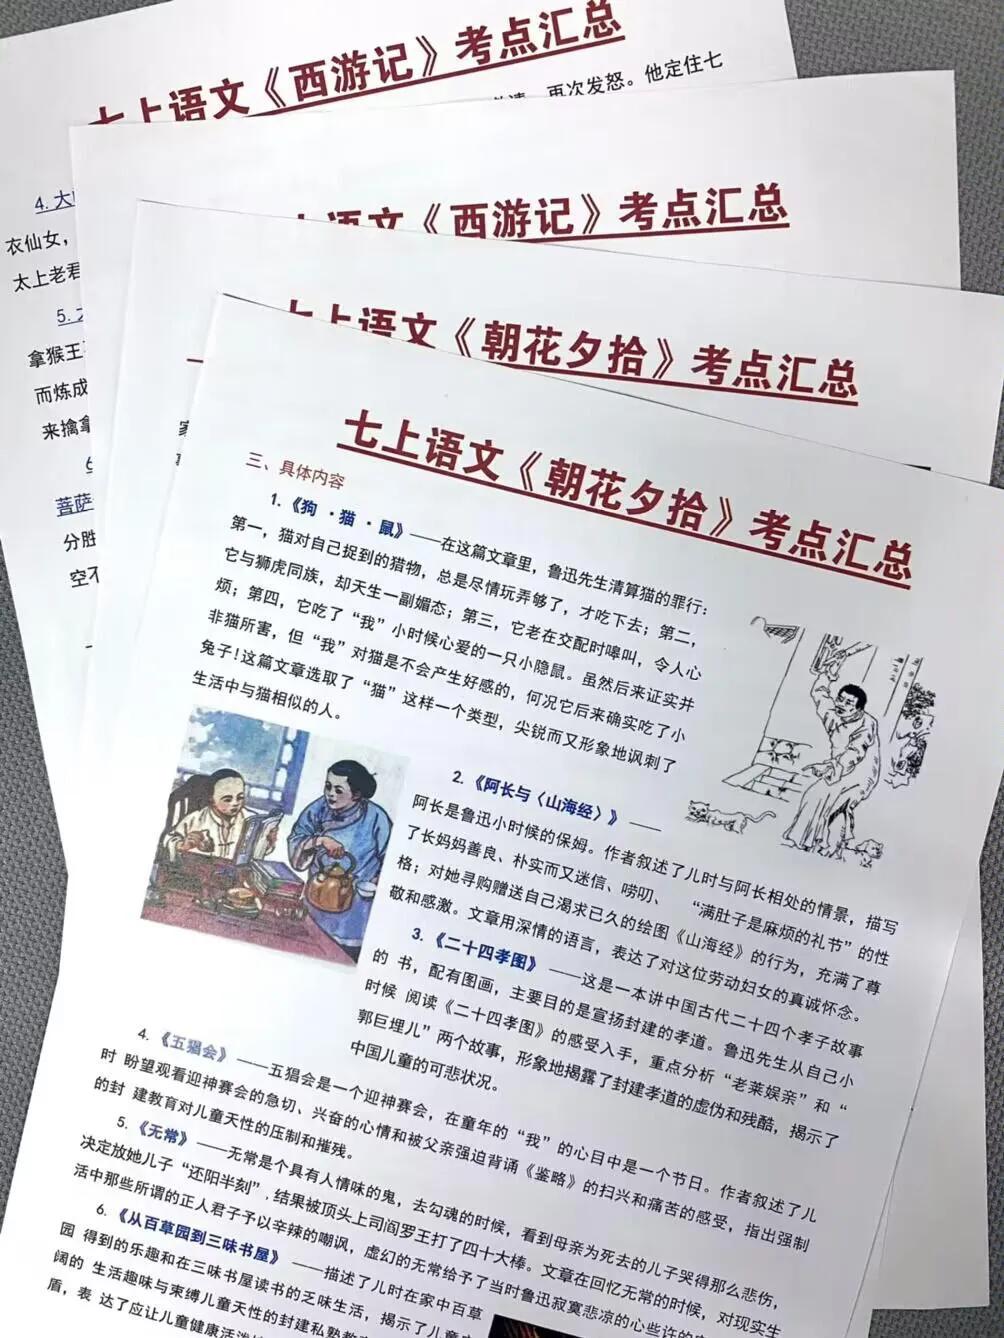 七上语文《西游记》考点汇总
再次发怒。他定住七
4. 大
衣仙女，
太上老君
5.
拿猴王
而炼成
来擒拿
菩萨
分胜
空不
上语文《西游记》考点汇总
七上语文《朝花夕拾》考点汇总
七上语文《朝花夕拾》考点汇总
三、具体内容
1.《狗·猫·鼠》——在这篇文章里，鲁迅先生清算猫的罪行：
第一，猫对自己捉到的猎物，总是尽情玩弄够了，才吃下去；第二，
它与狮虎同族，却天生一副媚态；第三，它老在交配时嗥叫，令人心
烦；第四，它吃了“我”小时候心爱的一只小隐鼠。虽然后来证实并
非猫所害，但“我”对猫是不会产生好感的，何况它后来确实吃了小
兔子！这篇文章选取了“猫”这样一个类型，尖锐而又形象地讽刺了
生活中与猫相似的人。
2.《阿长与〈山海经〉》——
阿长是鲁迅小时候的保姆。作者叙述了儿时与阿长相处的情景，描写
了长妈妈善良、朴实而又迷信、唠叨、 “满肚子是麻烦的礼节”的性
格；对她寻购赠送自己渴求已久的绘图《山海经》的行为，充满了尊
敬和感激。文章用深情的语言，表达了对这位劳动妇女的真诚怀念。
3.《二十四孝图》——这是一本讲中国古代二十四个孝子故事
的 书，配有图画，主要目的是宣扬封建的孝道。鲁迅先生从自己小
时候 阅读《二十四孝图》的感受入手，重点分析“老莱娱亲”和“
郭巨埋儿”两个故事，形象地揭露了封建孝道的虚伪和残酷，揭示了
中国儿童的可悲状况。
4.《五猖会》——五猖会是一个迎神赛会，在童年的“我”的心目中是一个节日。作者叙述了儿
时 盼望观看迎神赛会的急切、兴奋的心情和被父亲强迫背诵《鉴略》的扫兴和痛苦的感受，指出强制
的封 建教育对儿童天性的压制和摧残。
5.《无常》——无常是个具有人情味的鬼，去勾魂的时候，看到母亲为死去的儿子哭得那么悲伤，
决定放她儿子“还阳半刻”，结果被顶头上司阎罗王打了四十大棒。文章在回忆无常的时候，对现实生
活中那些所谓的正人君子予以辛辣的嘲讽，虚幻的无常给予了当时鲁迅寂寞悲凉的心些许的
6.《从百草园到三味书屋》——描述了儿时在家中百草
园 得到的乐趣和在三味书屋读书的乏味生活，揭示了儿童
阔的 生活趣味与束缚儿童天性的封建私塾教
盾，表 达了应让儿童健康活泼